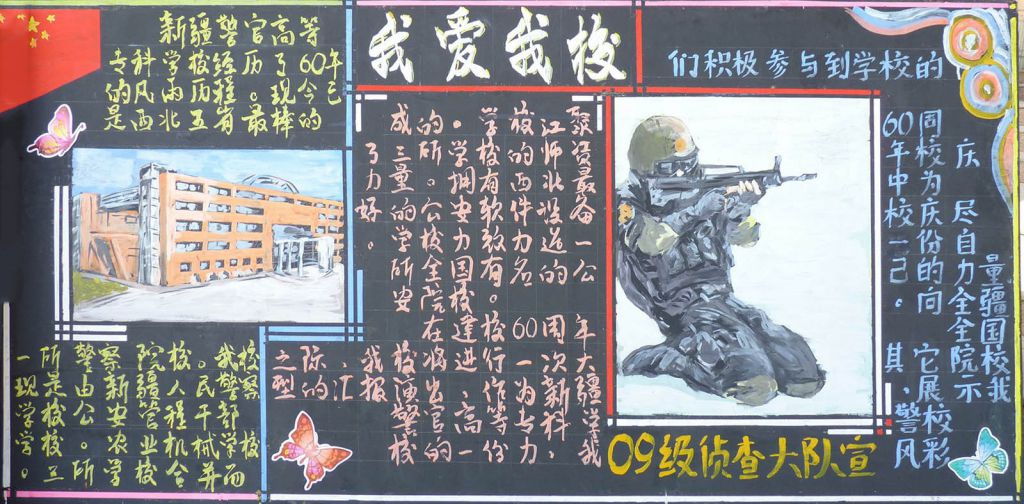 我爱我校
新疆警官高等
专科学校经历了60年
的风雨历程。现今已
是西北五省最棒的
一所警察院校。我校
现是由新疆人民警察
学校。公安管程干部
学校。农业机械学校
三所学校合并而
成的。学校江聚
了三所学校的师资
力量。拥有西北最
好的公安软件设备
。学校力教造一
所全国有名的公
安院校。
在建校60周年
之际，我校将进行一次大
型的汇报演出，作为新疆
警官高等科学
校的一份力，我
们积极参与到学校的
60周年校庆
中为校庆尽
一份自
己的力量
。向全疆
全国
其它院校
，展示我
警校
风彩
09级侦查大队宣